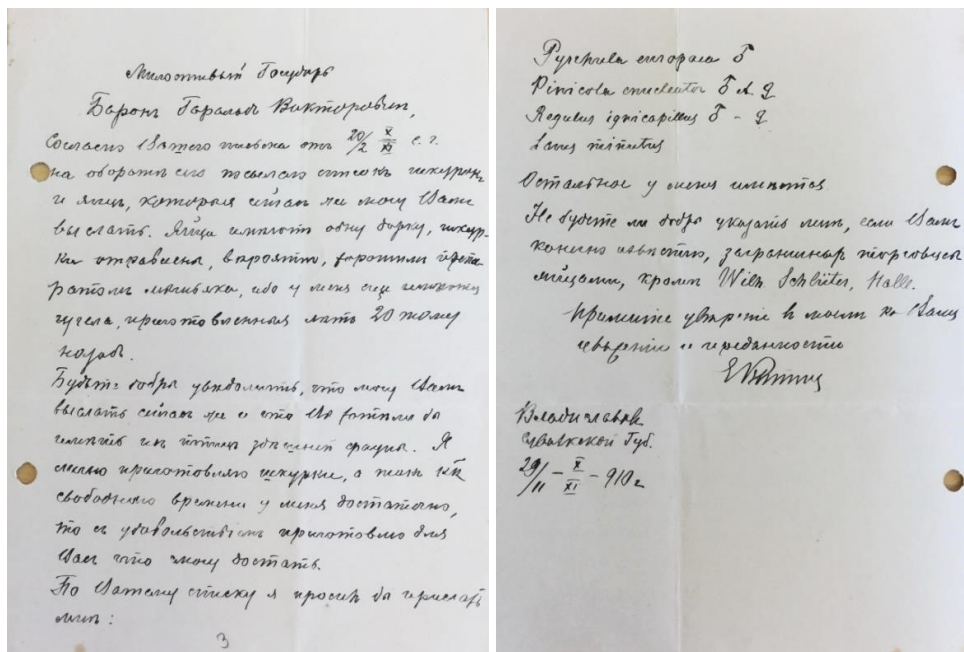 Милостивый Государь
Баронъ Гаральдъ Викторовичъ,
Согласно Вашего письма отъ 20/2 X/XI с. г.
на оборотѣ сего посылаю списокъ шкурокъ
и яицъ, которыя сейчас же могу Вамъ
выслать. Яйца имѣютъ одну дырку, шкур-
ки отравлены, вѣроятно, хорошимъ препа-
ратомъ мышьяка, ибо у меня еще имѣются
чучела, приготовленныя лѣтъ 20 тому
назадъ.
Будьте добры увѣдомить, что могу Вамъ
выслать сейчас же и что Вы хотѣли бы
имѣть изъ птицъ здѣшней фауны. Я
самъ приготовляю шкурки, а такъ какъ
свободнаго времени у меня достаточно,
то съ удовольствіемъ приготовлю для
Васъ что смогу достать.
По Вашему списку я просилъ бы прислать
мнѣ:
3
Pyrrhula europaea ♂
Pinicola enucleator ♂ ♀
Regulus ignicapillus ♂ - ♀
Larus minutus
Остальное у меня имѣется
Не будете ли добры указать мнѣ, если Вамъ
конечно извѣстно, заграничныхъ торговцевъ
яйцами, кромѣ Wilh. Schlüter, Halle.
Примите увѣреніе въ моемъ къ Вамъ
уваженіи и преданности
Владиславовъ
Сувалкской Губ.
29/11 - X/XI - 910 г